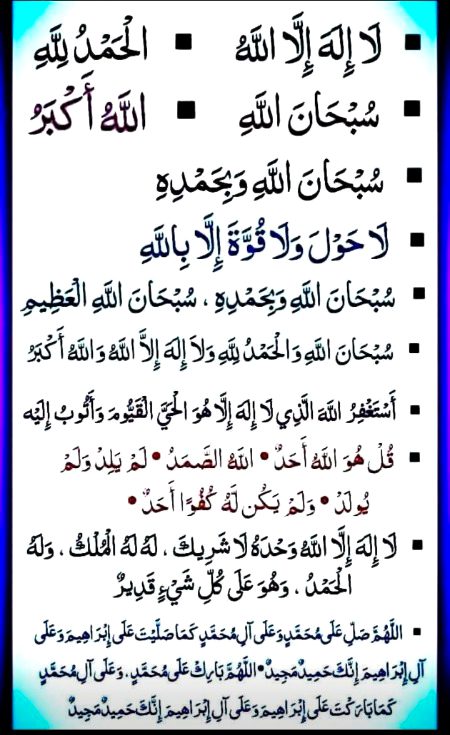 ▪ لَا إِلَهَ إِلَّا اللَّهُ ▪ الْحَمْدُ لِلَّهِ
▪ سُبْحَانَ اللَّهِ ▪ اللَّهُ أَكْبَرُ
▪ سُبْحَانَ اللَّهِ وَبِحَمْدِهِ
▪ لَا حَوْلَ وَلَا قُوَّةَ إِلَّا بِاللَّهِ
▪ سُبْحَانَ اللَّهِ وَبِحَمْدِهِ ، سُبْحَانَ اللَّهِ الْعَظِيمِ
▪ سُبْحَانَ اللَّهِ وَالْحَمْدُ لِلَّهِ وَلاَ إِلَهَ إِلاَّ اللَّهُ وَاللَّهُ أَكْبَرُ
▪ أَسْتَغْفِرُ اللَّهَ الَّذِي لَا إِلَهَ إِلَّا هُوَ الْحَيَّ الْقَيُّومَ وَأَتُوبُ إِلَيْه
▪ قُلْ هُوَ اللَّهُ أَحَدٌ • اللَّهُ الصَّمَدُ • لَمْ يَلِدْ وَلَمْ
يُولَدْ • وَلَمْ يَكُن لَّهُ كُفُوًا أَحَدٌ •
▪ لَا إِلَهَ إِلَّا اللَّهُ وَحْدَهُ لَا شَرِيكَ ، لَهُ لَهُ الْمُلْكُ ، وَلَهُ
الْحَمْدُ ، وَهُوَ عَلَى كُلِّ شَيْءٍ قَدِيرٌ
▪ اللَّهُمَّ صَلِّ عَلَى مُحَمَّدٍ وَعَلَى آلِ مُحَمَّدٍ كَمَا صَلَّيْتَ عَلَى إِبْرَاهِيمَ وَعَلَى
آلِ إِبْرَاهِيمَ إِنَّكَ حَمِيدٌ مَجِيدٌ • اللَّهُمَّ بَارِكْ عَلَى مُحَمَّدٍ ، وَعَلَى آلِ مُحَمَّدٍ
كَمَا بَارَكْتَ عَلَى إِبْرَاهِيمَ وَعَلَى آلِ إِبْرَاهِيمَ إِنَّكَ حَمِيدٌ مَجِيدٌ